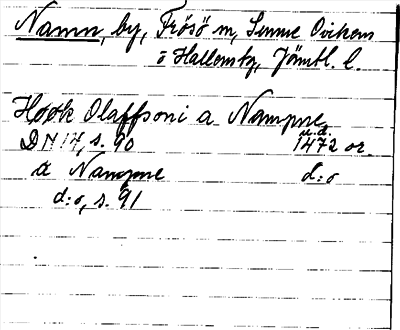 Namn, by, Frösö m, Sunne Ovikens
o Hallens tg, Jämtl. l.
Haak Olaffsoni a Nampne
u.d.
DN 14, s. 90 1472 or.
a Nampne d:o
d:o, s. 91